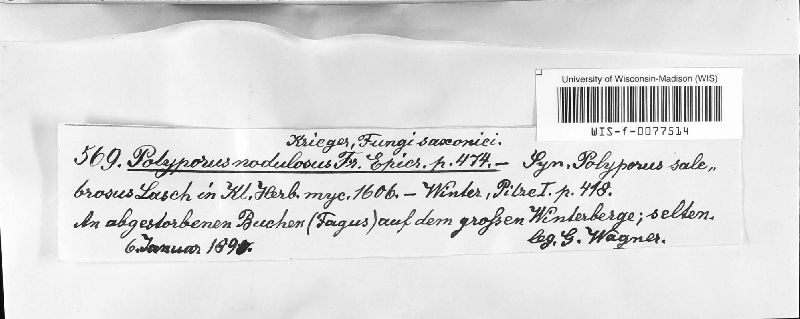 University of Wisconsin-Madison (WIS)
WIS-f-0077514
Krieger, Fungi saxonici.
569. Polyporus nodulosus Fr. Epicr. p. 474. – Syn. Polyporus sale„
brosus Lasch in Kl. Herb. myc. 1606. – Winter, Pilze I. p. 418.
An abgestorbenen Buchen (Fagus) auf dem großen Winterberge; selten.
6. Januar leg. G. Wagner.